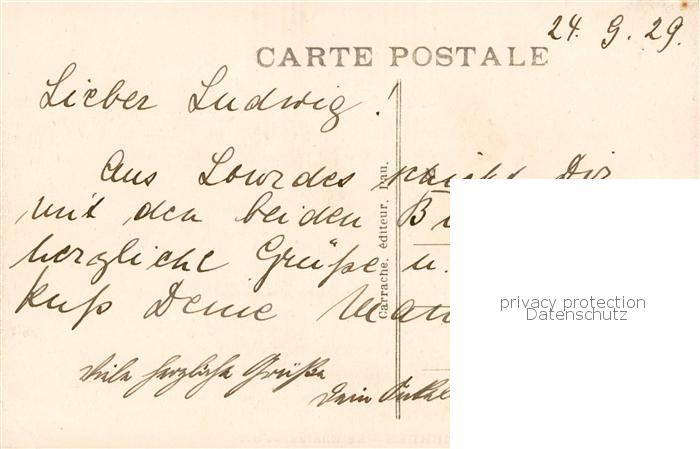 24. 9. 29.
CARTE POSTALE
Lieber Ludwig!
Aus Lourdes schickt Dir
mit den beiden B
herzliche Grüße u.
Kuß Deine
Carrache, éditeur, Pau.
privacy protection
Datenschutz
Viele herzliche Grüße
Dein Onkel